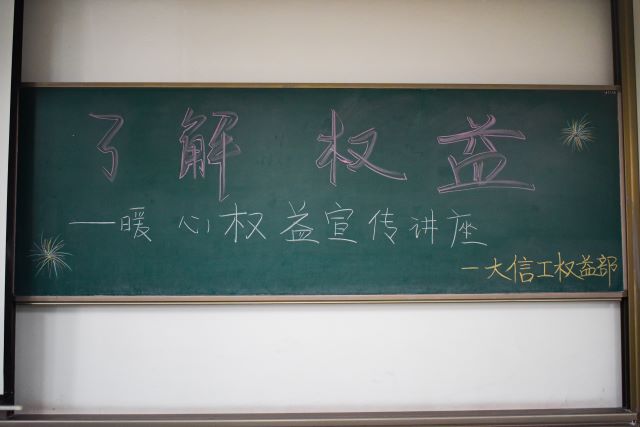 了解权益
—暖心权益宣传讲座
—大信工权益部